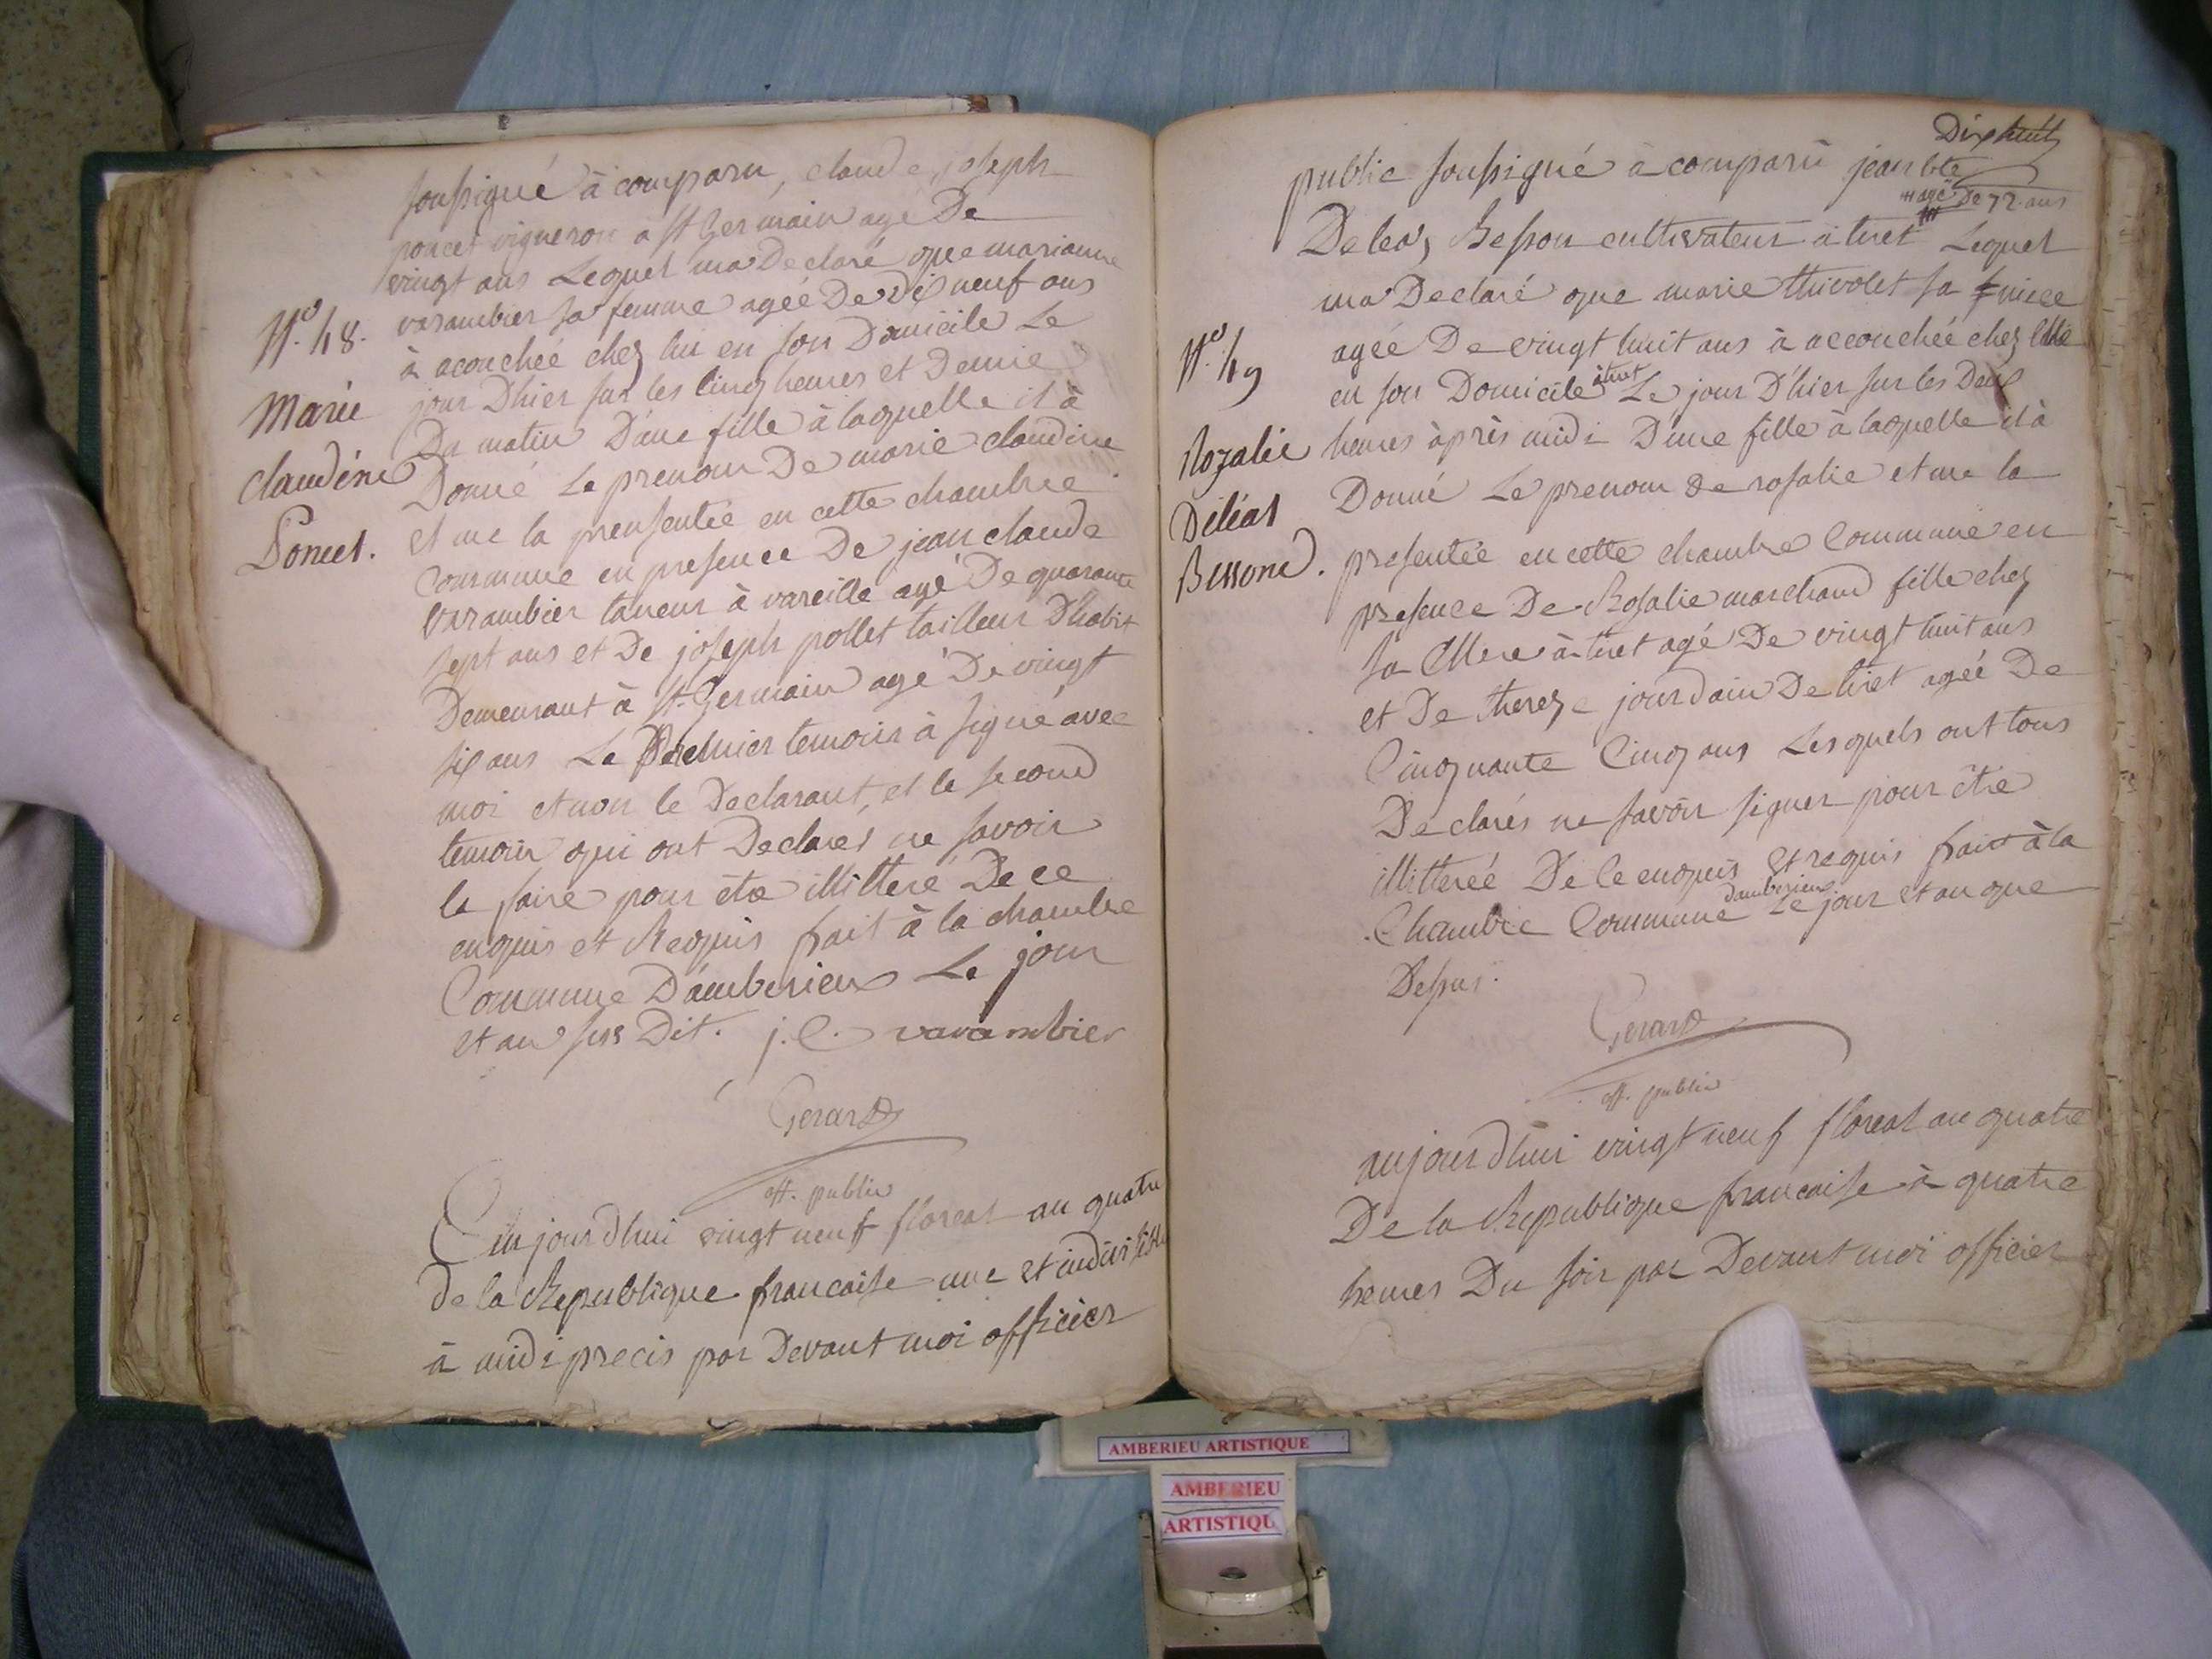 soussigné à comparu, claude joseph
poncet vigneron a St Germain agé De
vingt ans Lequel ma Declaré que marianne
varambier sa femme agéé De dix neuf ans
à acouchéé chez lui en son Domicile Le
jour D'hier sur les cinq heures et Demie
Du matin D'une fille à laquelle il à
Donné Le prenom De marie claudine
et me la prensentée en cette chambre
Commune en presence De jean claude
varambier taneur à vareille agé De quarante
sept ans et De joseph pollet tailleur D'habit
Demeurant à St. Germain agé De vingt
six ans Le Premier temoin à signé avec
moi et non le Declarant, et le second
temoin qui ont Declarés ne savoir
le faire pour etre illitteré De ce
enquis et Requis fait à la chambre
Commune D'amberieux Le jour
et an sus Dit. j. C. varambier
Gerard
off. public
No. 48.
Marie
Claudine
Poncet.
Aujourdhui vingt neuf floreal an quatre
de la Republique francaise une et indivisible
à midi precis par Devant moi officier
Dixhuit
public soussigné à comparû jean bte
agé De 72 ans
Deleas, Besson cultivateur à tiret Lequel
ma Declaré que marie thivolet sa niece
agéé De vingt huit ans à accouchéé chez elle
en son Domicile à tiret Le jour D'hier sur les Deux
heures àprès midi D'une fille à laquelle il à
Donné Le prenom De rosalie et me la
presentéé en cette chambre Commune en
presence De Rosalie marchand fille chez
sa Mere à tiret agé De vingt huit ans
et De thereze jourdain De tiret agéé De
Cinquante Cinq ans Lesquels ont tous
Declarés ne savoir signer pour être
illitteréé De ce enquis et requis fait à la
Chambre Commune damberieux Le jour et an que
Dessus.
Gerard
off. public
No. 49
Rozalie
Déléas
Besson.
aujourdhui vingt neuf floreal an quatre
De la Republique francaise à quatre
heures Du soir par Devant moi officier
AMBERIEU ARTISTIQUE
AMBERIEU
ARTISTIQU